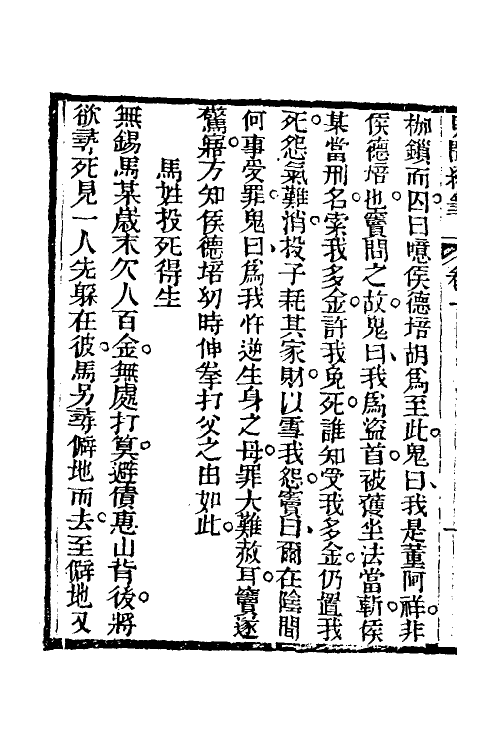 枷鎖而囚曰噫侯德培胡爲至此鬼曰我是董阿祥非
侯德培也竇問之故鬼曰我爲盜首被獲坐法當斬侯
某當刑名索我多金許我免死誰知受我多金仍置我
死怨氣難消投子耗其家財以雪我怨竇曰爾在陰間
何事受罪鬼曰爲我忤逆生身之母罪大難赦耳竇遂
驚寤方知侯德培幼時伸拳打父之由如此
馬姓投死得生
無錫馬某歲末欠人百金無處打算避債惠山背後將
欲尋死見一人先躲在彼馬另尋僻地而去至僻地又